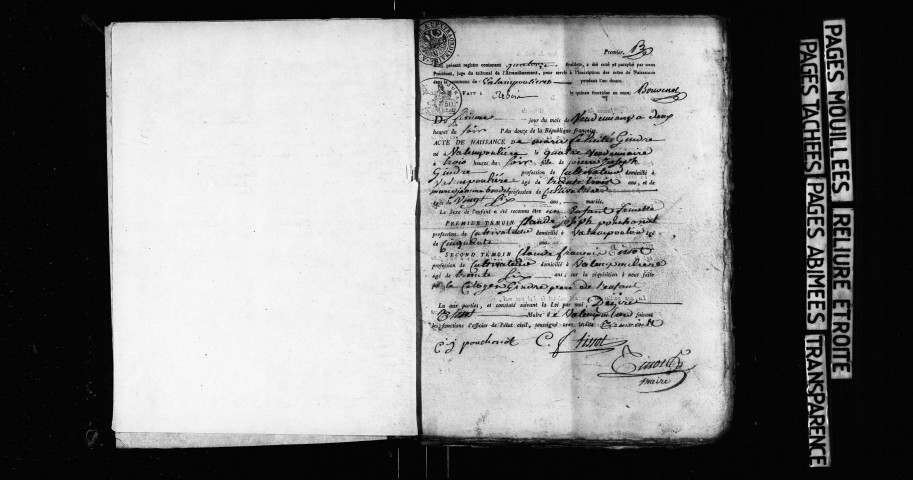 Premier.
présent registre contenant quatorze feuillets, a été coté et paraphé par nous
Président, juge du tribunal de l'Arrondissement, pour servir à l'inscription des actes de Naissances
dans la commune de Valempoulieres pendant l'an douze.
FAIT à le quinze fructidor an onze,
Du jour du mois de Vendemiaire a deux
heures du Soir l'an douze de la République française.
ACTE DE NAISSANCE De marie Gindre
né à Valempoulière le quatre vendemiaire
à trois heures du Soir, fille de pierre joseph
Gindre profession de Cultivateur domicilié à
Valempoulière agé de trente trois ans, et de
profession de Cultivatrice
agée de Vingt Six ans, mariés.
Le Sexe de l'enfant a été reconnu être un Enfant femelle
PREMIER TÉMOIN Claude joseph pouchonot
profession de Cultivateur domicilié à Valempoulou agé
de Cinquante ans.
SECOND TÉMOIN Claude françois Tissot
profession de Cultivateur domicilié à Valempouliere
agé de trente Six ans, sur la réquisition à nous faite
le Citoyen Gindre pere de l'enfant
Lu aux parties, et constaté suivant la Loi par moi, Désiré
Tissot Maire de Valempoulou faisant
les fonctions d'officier de l'état civil, soussigné avec lesdits
C. j pouchonot C. f tissot
Tissot
maire
PAGES MOUILLEES RELIURE ETROITE
PAGES TACHEES PAGES ABIMEES TRANSPARENCE